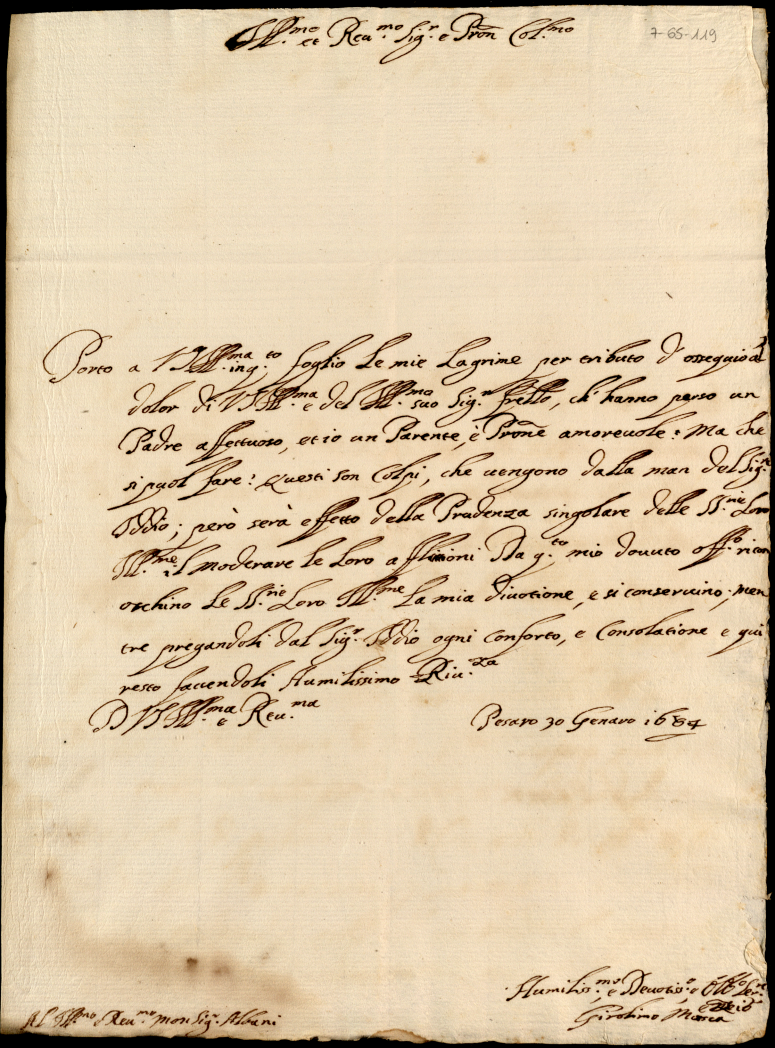 Ill.mo et Reu.mo Sig.r e Pron Col.mo
7-65-119
Porto a VS Ill.ma in q.to foglio le mie lagrime per tributo d'ossequio al
dolor di VS Ill.ma e del Ill.mo suo Sig.r frello, ch'hanno perso un
Padre affettuoso, et io un Parente, è Prone amoreuole: Ma che
si puol fare? Questi son Colpi, che uengono dalla man del Sig.r
Iddio; però serà effetto della Prudenza singolare delle SS.rie Loro
Ill.me il moderare le Loro afflitioni Da q.to mio douuto off.o ricon
oschino le SS.rie Loro Ill.me la mia diuotione, e si conseruino; men
tre pregandoli dal Sig.r Iddio ogni conforto, e Consolatione e qui
resto facendoli Humilissimo Riu.za
D VS Ill.ma e Reu.ma
Pesaro 30 Genaro 1684
Humiliss.mo e Deuotiss.o e Obl.o Ser.re
Girolimo Mosca
Al Ill.mo e Reu.mo Monsig.r Albani